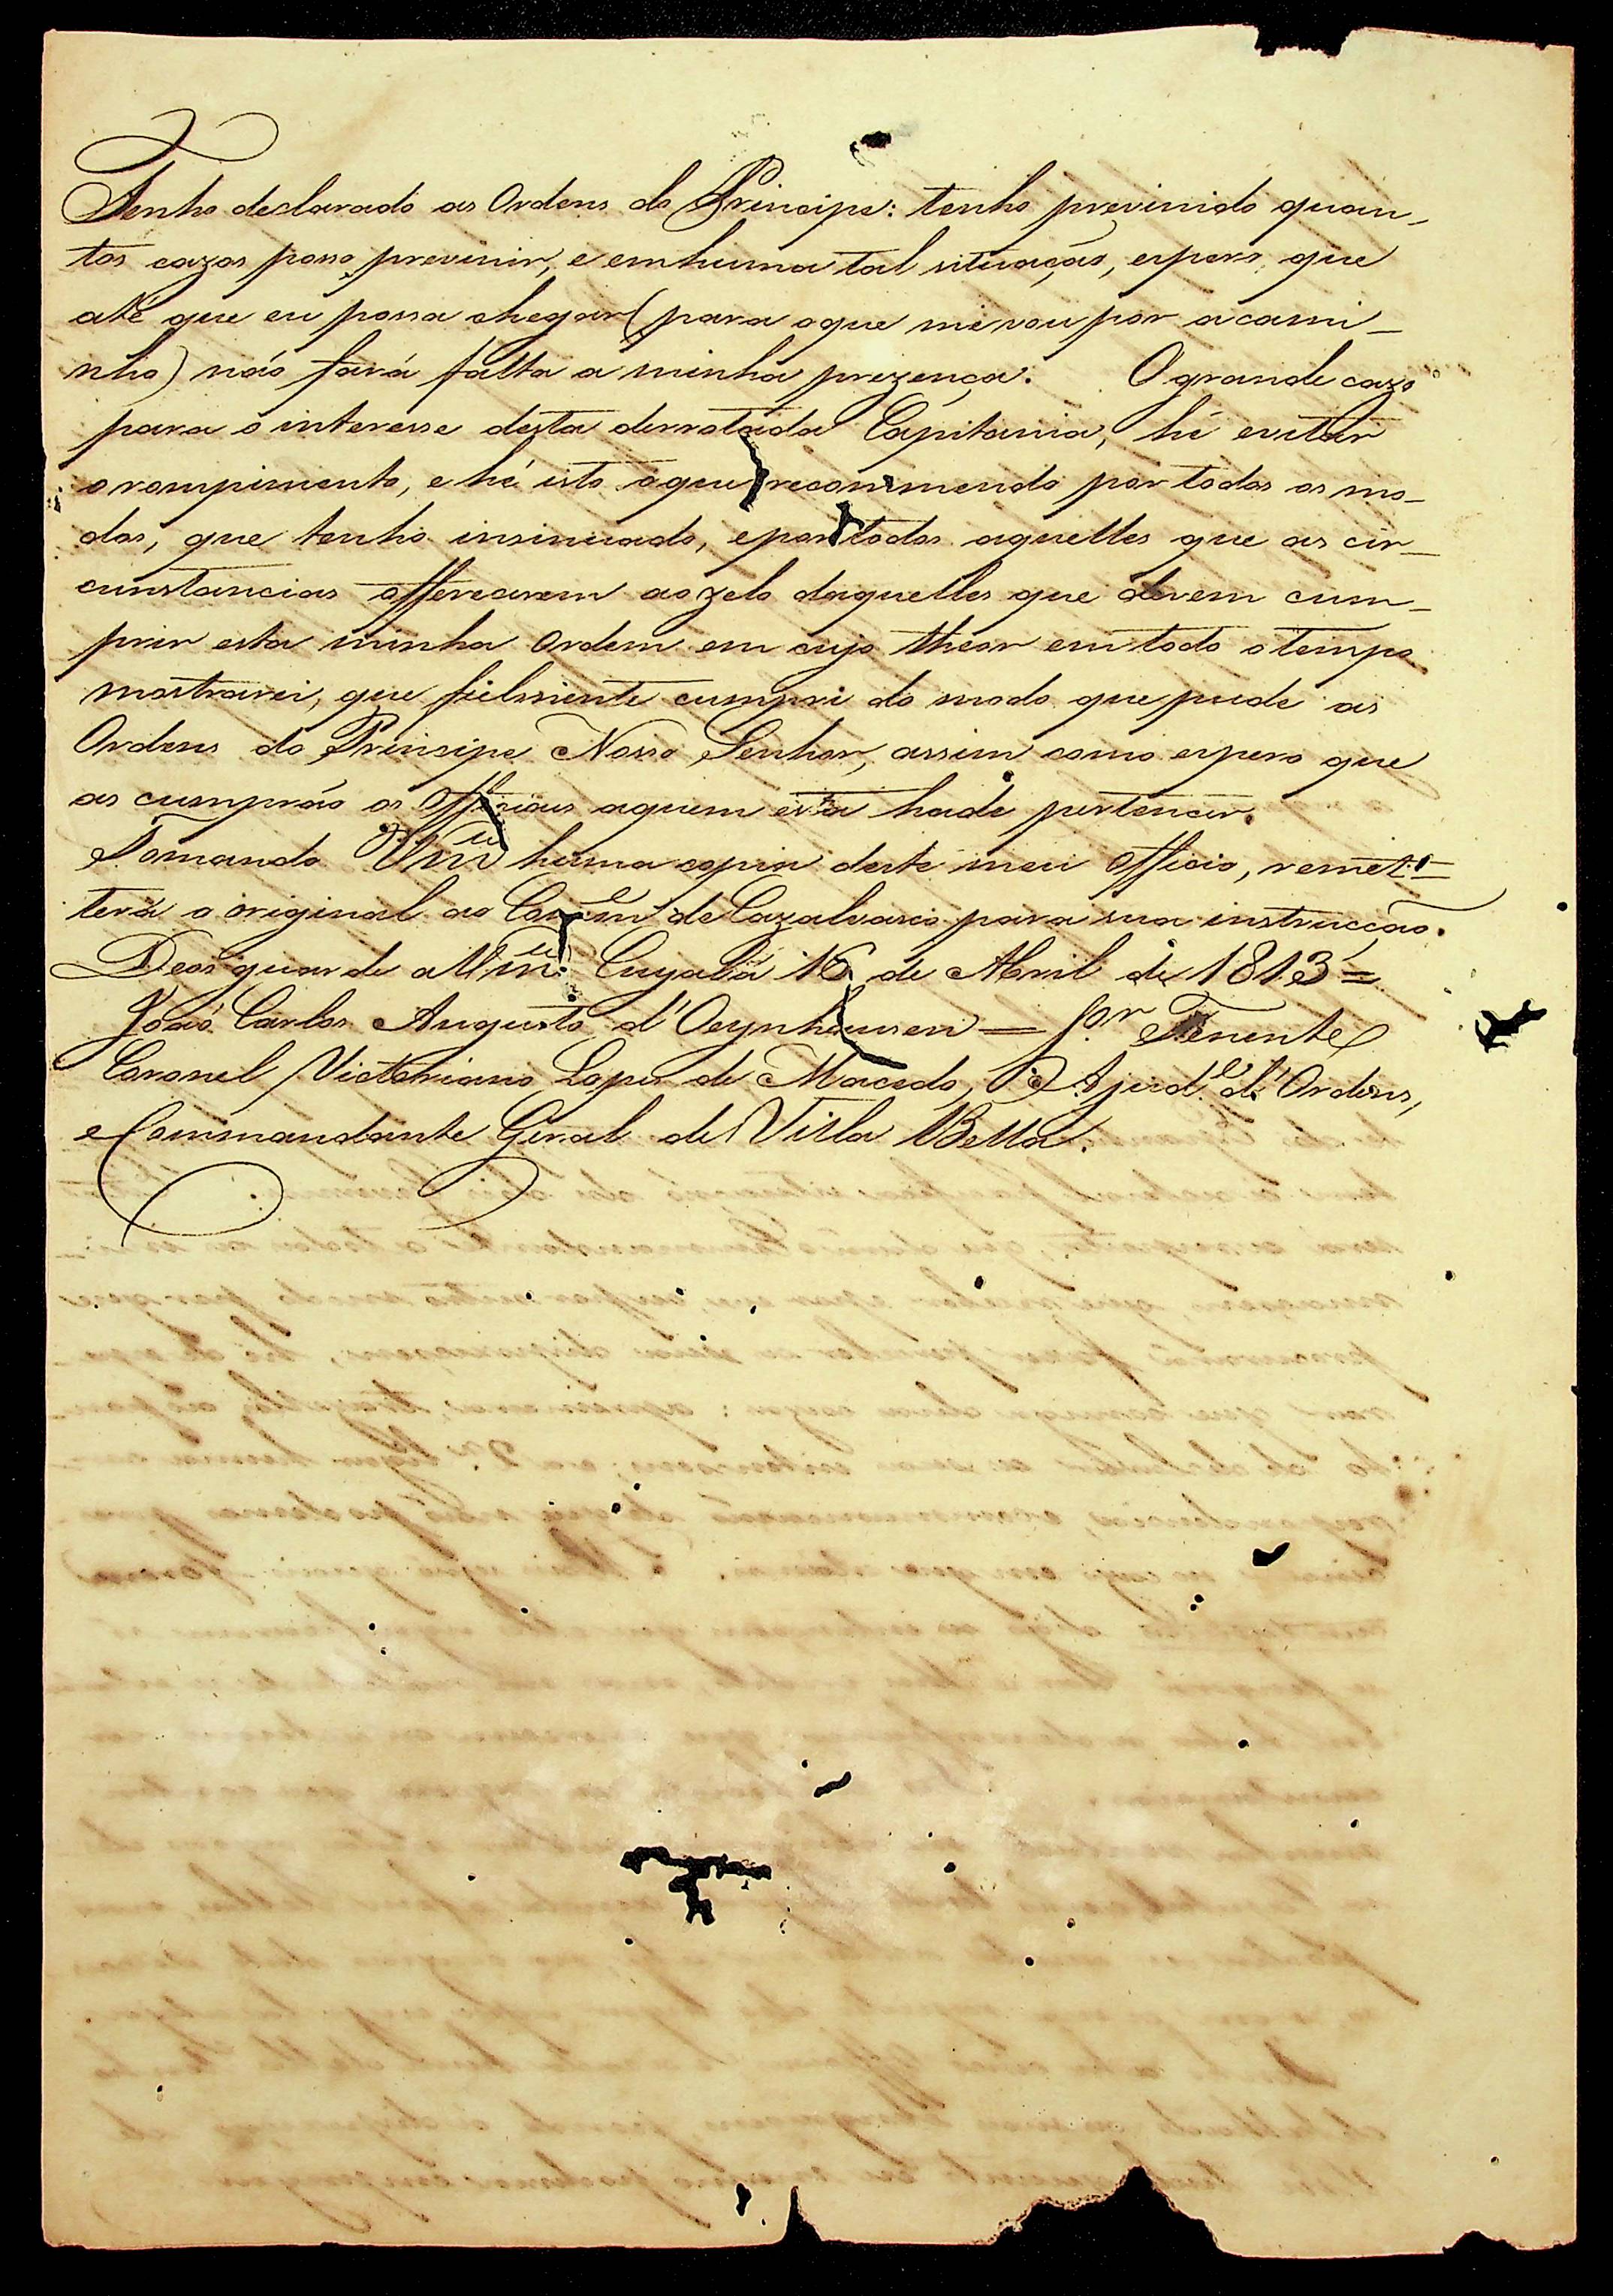 Tenho declarado as Ordens do Principe: tenho previnido quan-
tos cazos posso prevenir, e em huma tal situação, espero, que
até que eu possa chegar (para o que me vou pôr a cami-
nho) não fará falta a minha prezença. O grande cazo
para o interesse desta derrotada Capitania, hé evitar
o rompimento, e hé isto o que recommendo por todos os mo-
dos, que tenho insinuado, e por todos aquelles que as cir-
cunstancias offerecerem ao zelo daquelles que devem cum-
prir esta minha Ordem em cujo theor em todo o tempo
mostrarei, que fielmente cumpri do modo que pude as
Ordens do Principe Nosso Senhor, assim como espero que
as cumprão os Officiaes a quem esta hade pertencer.
Tomando Vm.ce huma copia deste meu Officio, remet-
terá o original ao Com.e de Cazalvasco para sua instrucção.
Deos guarde a Vm.ce Cuyabá 16 de Abril de 1813 =
João Carlos Augusto d'Oeynhausen = S.or Tenente
Coronel Victoriano Lopes de Macedo, Ajud.e d'Ordens,
e Commandante Geral de Villa Bella.